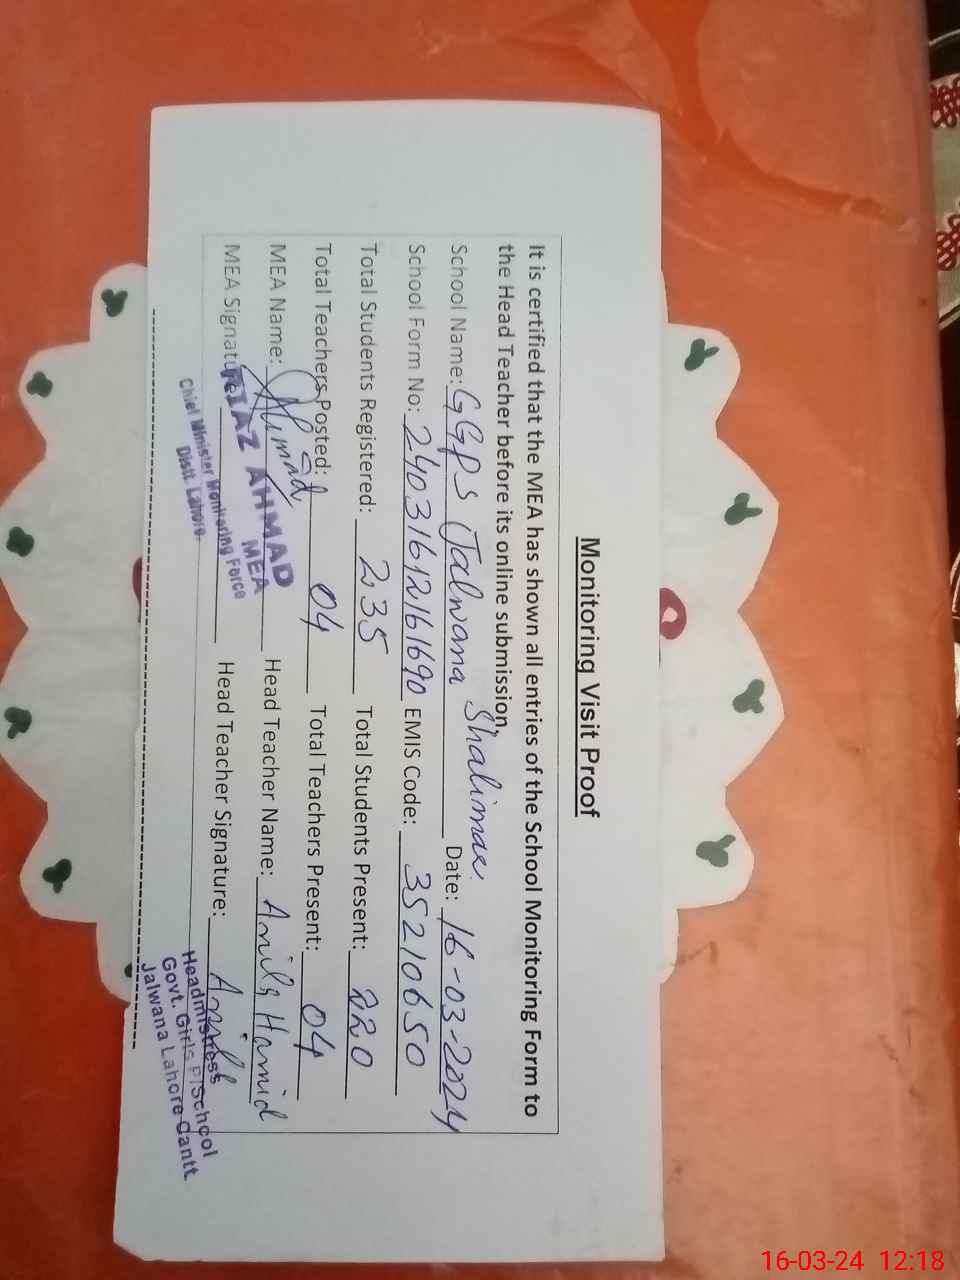 Monitoring Visit Proof
It is certified that the MEA has shown all entries of the School Monitoring Form to
the Head Teacher before its online submission.
School Name: GGPS Jalwana Shalimar. Date: 16-03-2024
School Form No: 24031612161690 EMIS Code: 35210650
Total Students Registered: 235 Total Students Present: 220
Total Teachers Posted: 04 Total Teachers Present: 04
MEA Name: Head Teacher Name: Anila Hamid
MEA Signature: Head Teacher Signature:
RIAZ AHMAD
MEA
Chief Minister Monitoring Force
Distt. Lahore.
Headmistress
Govt. Girls P/School
Jalwana Lahore Cantt
16-03-24 12:18